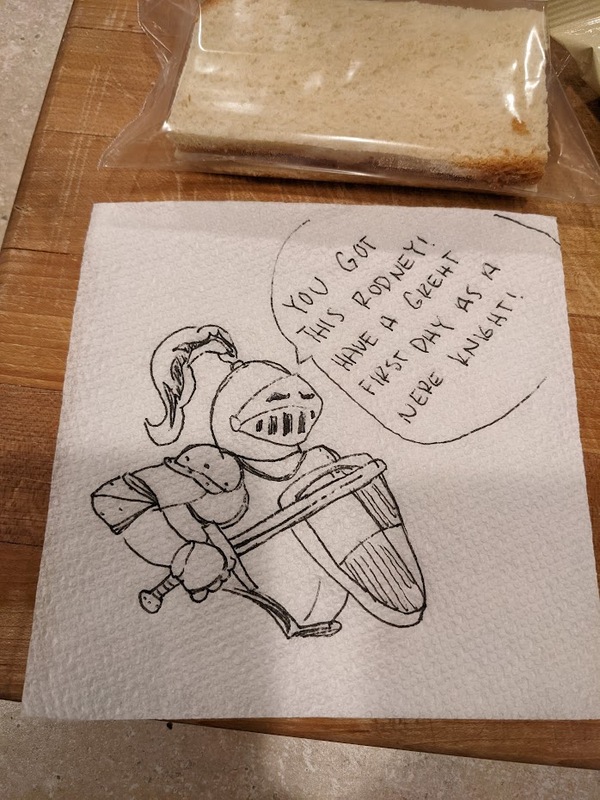 YOU GOT
THIS RODNEY!
HAVE A GREAT
FIRST DAY AS A
NERE KNIGHT!